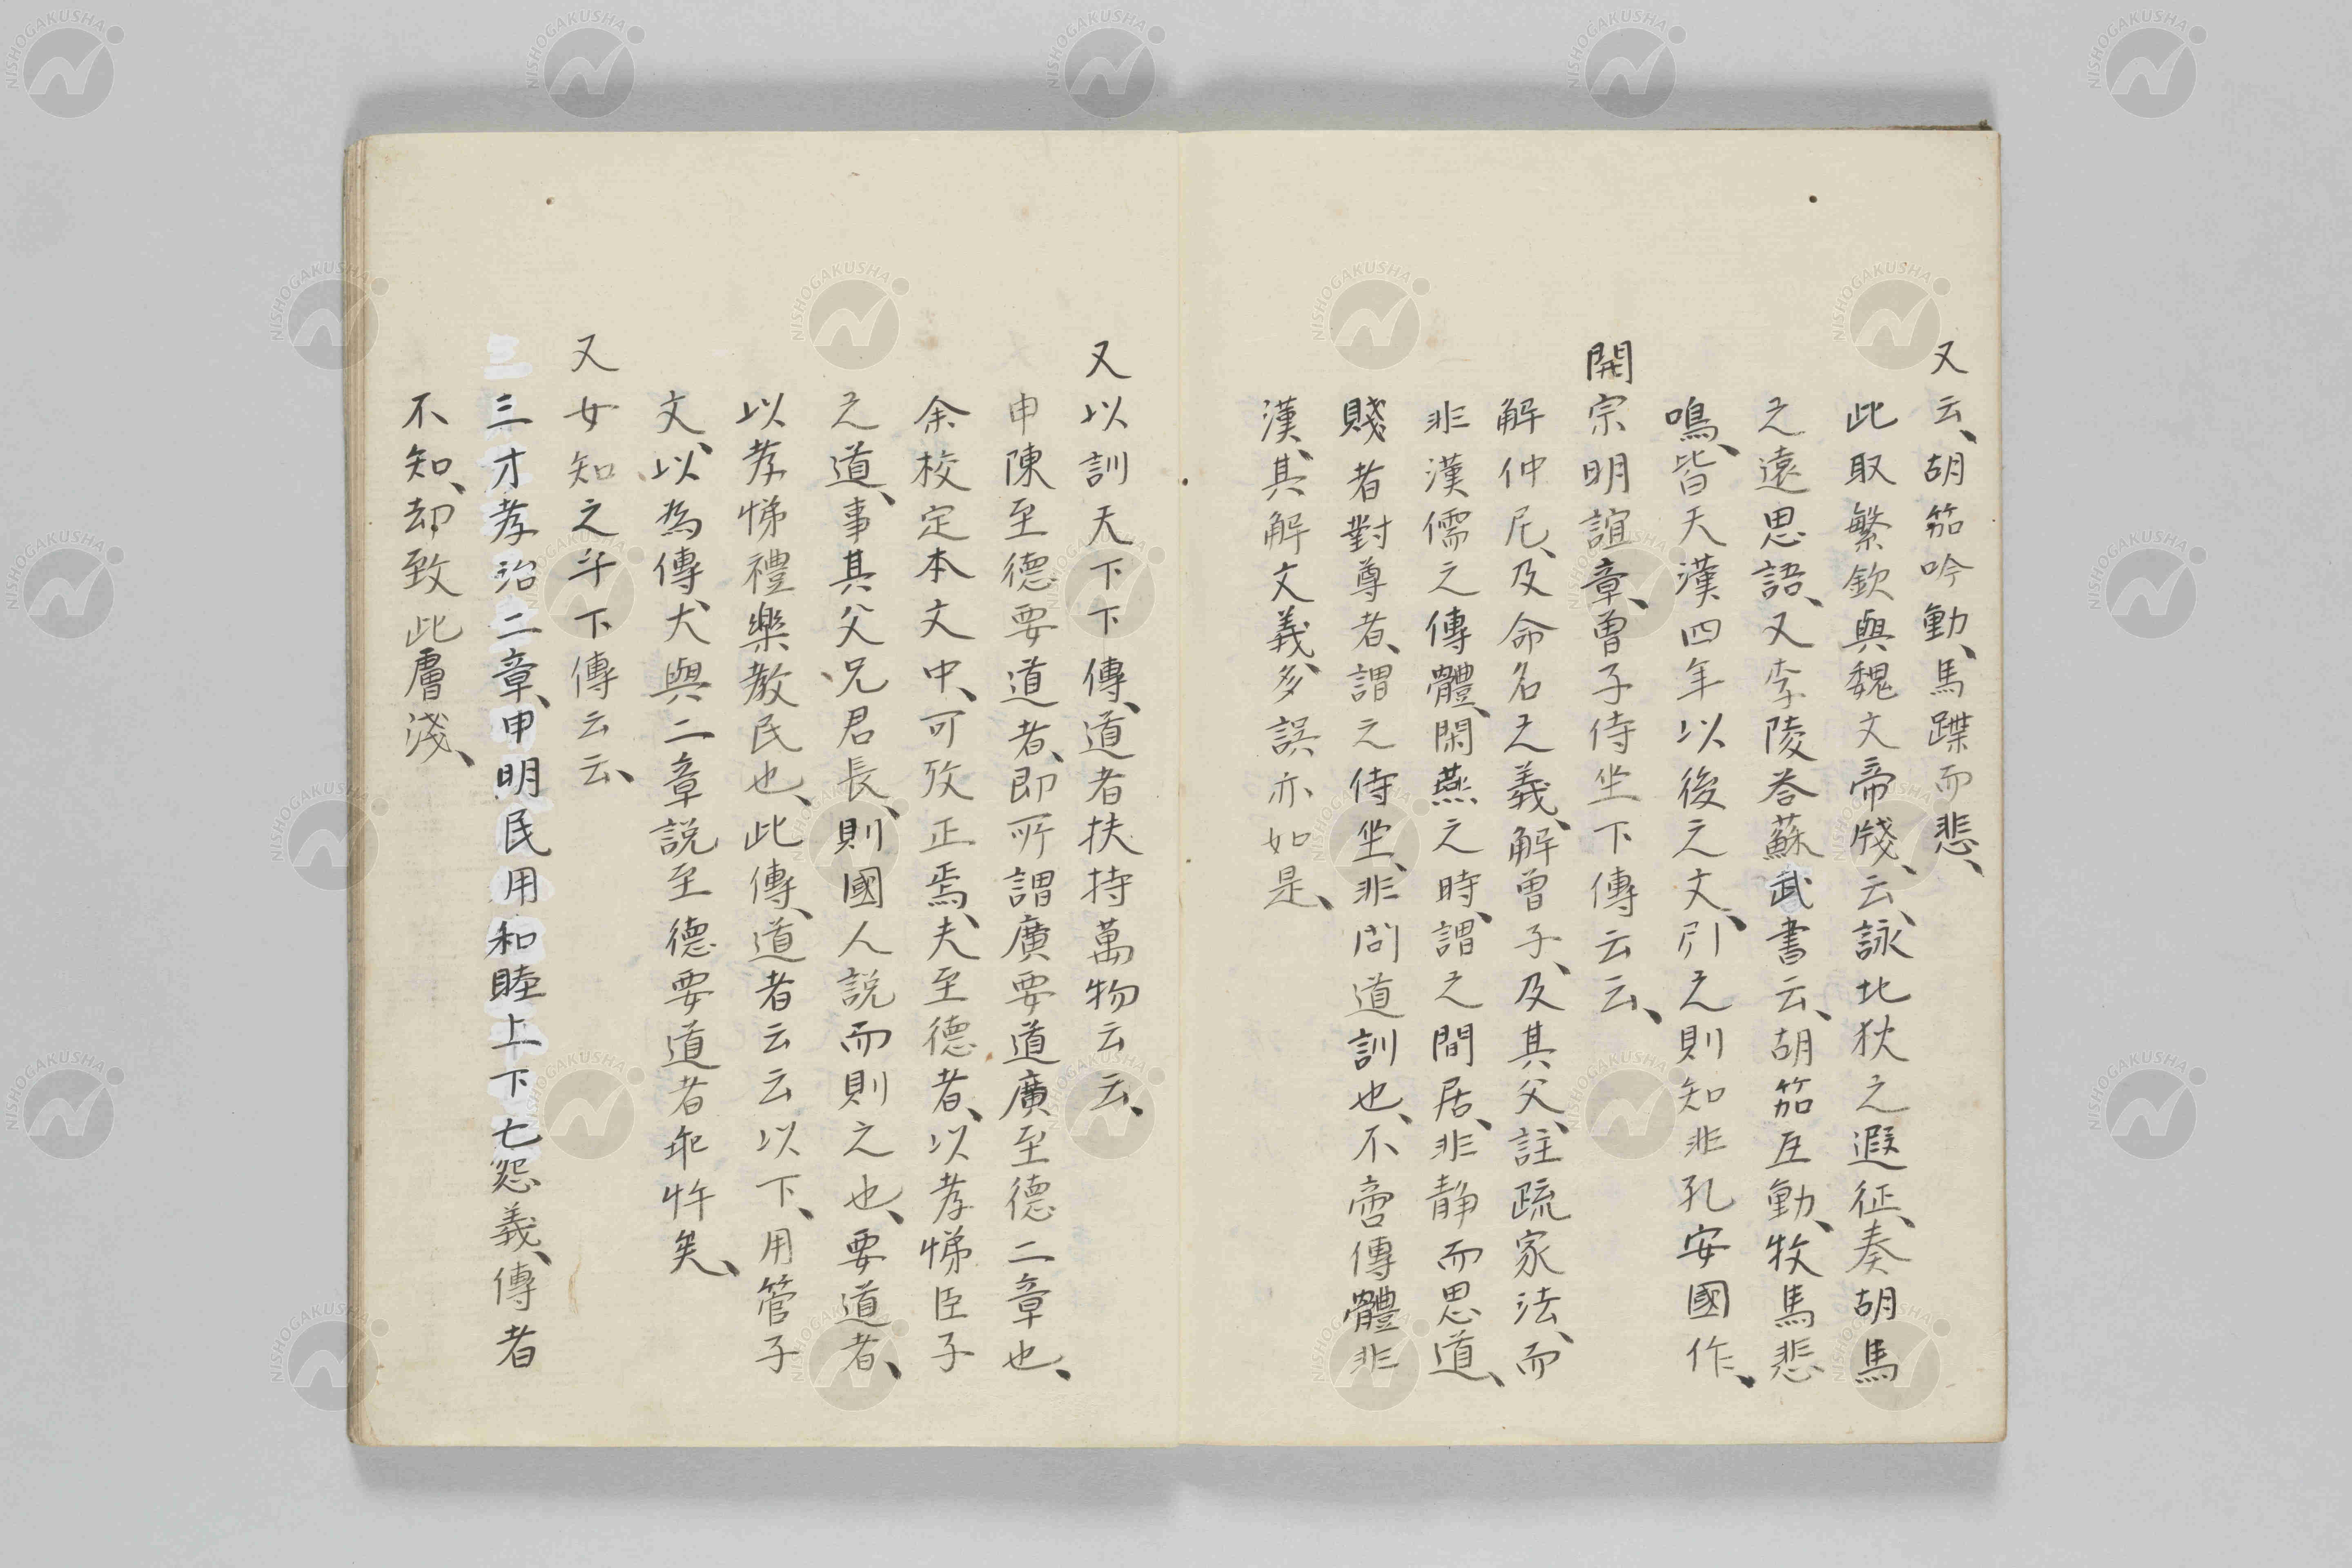 又云、胡笳吟動、馬蹀而悲、
此取繁欽與魏文帝牋、云、詠北狄之遐征、奏胡馬
之遠思語、又李陵荅蘇武書云、胡笳互動、牧馬悲
鳴、皆天漢四年以後之文、引之則知非孔安國作、
開宗明誼章、曾子侍坐下傳云云、
解仲尼、及命名之義、解曾子、及其父、註疏家法、而
非漢儒之傳體、閑燕之時、謂之間居、非静而思道、
賤者對尊者、謂之侍坐、非問道訓也、不啻傳體非
漢、其解文義、多誤亦如是、
又以訓天下下傳、道者扶持萬物云云、
申陳至德要道者、即所謂廣要道廣至德二章也、
余校定本文中、可攷正焉、夫至德者、以孝悌臣子
之道、事其父兄君長、則國人説而則之也、要道者、
以孝悌禮樂教民也、此傳、道者云云以下、用管子
文、以為傳、大與二章説至德要道者乖忤矣、
又女知之乎下傳云云、
三才孝治二章、申明民用和睦上下亡怨義、傳者
不知、却致此膚淺、
NISHOGAKUSHA